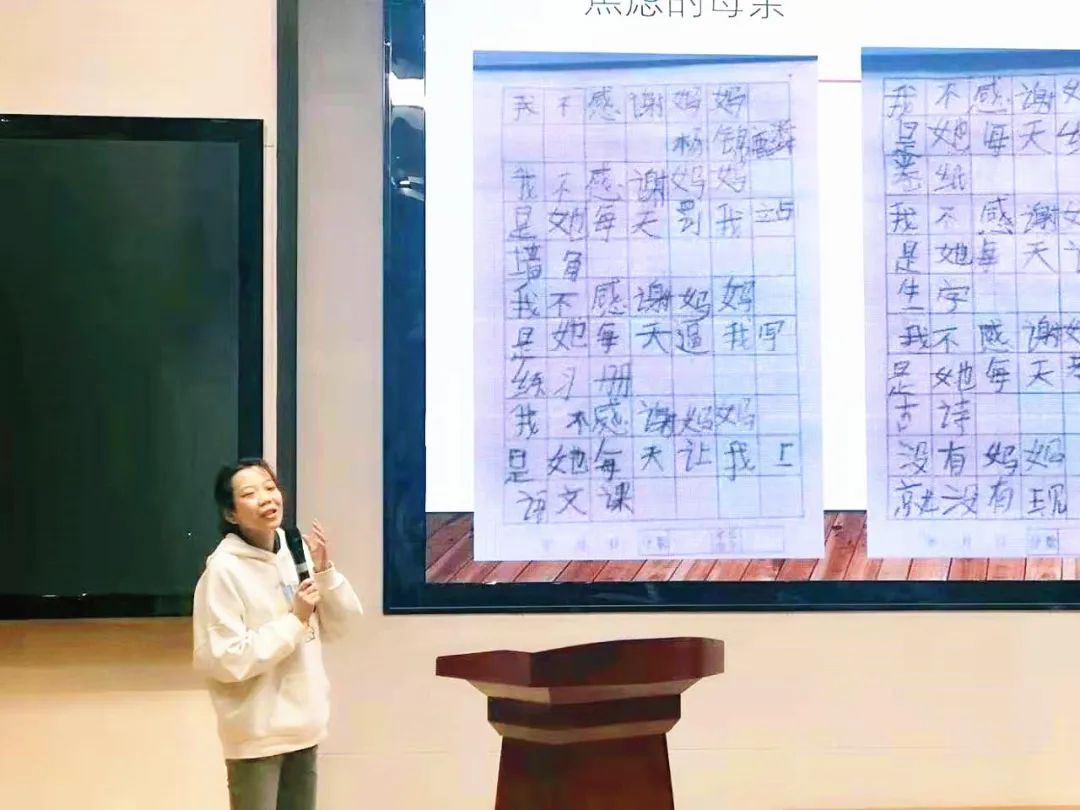 焦虑的母亲
我不感谢妈妈
杨锦
我不感谢妈妈
是她每天罚我站
墙角
我不感谢妈妈
是她每天逼我写
练习册
我不感谢妈妈
是她每天让我上
语文课
我不感谢
是她每天
卷纸
我不感谢
是她每天
生字
我不感谢
是她每天
古诗
没有妈妈
就没有现